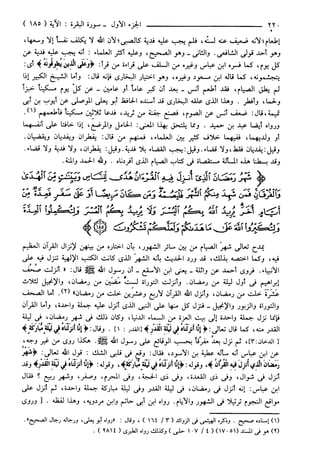 ٢٢٠ ــــــ الجزء الأول ـ سورة البقرة : الآية ( ١٨٥ )
إطعام، لأنه ضعيف عنه لسنّه، فلم يجب عليه فدية كالصبي؛ لأن الله لا يكلف نفساً إلا وسعها،
وهو أحد قولي الشافعي. والثاني ـ وهو الصحيح، وعليه أكثر العلماء : أنه يجب عليه فدية عن
كل يوم، كما فسره ابن عباس وغيره من السلف على قراءة من قرأ: ﴿وَعَلَى الَّذِينَ يُطِيقُونَهُ﴾ أي:
يتجشمونه، كما قاله ابن مسعود وغيره، وهو اختيار البخاري فإنه قال: وأما الشيخ الكبير إذا
لم يطق الصيام، فقد أطعم أنس ـ بعد أن كبر عاماً أو عامين ـ عن كل يوم مسكيناً خبزاً
ولحماً، وأفطر . وهذا الذي علقه البخاري قد أسنده الحافظ أبو يعلى الموصلي عن أيوب بن أبي
تميمة، قال: ضعف أنس عن الصوم، فصنع جفنة من ثريد، فدعا ثلاثين مسكيناً فأطعمهم (١).
ورواه أيضا عبد بن حميد . ومما يلتحق بهذا المعنى: الحامل والمرضع، إذا خافتا على أنفسهما
أو ولديهما، ففيهما خلاف كثير بين العلماء، فمنهم من قال: يفطران ويفديان ويقضيان.
وقيل: يفديان فقط، ولا قضاء. وقيل: يجب القضاء بلا فدية. وقيل: يفطران، ولا فدية ولا قضاء.
وقد بسطنا هذه المسألة مستقصاة في كتاب الصيام الذي أفردناه . ولله الحمد والمنة.
﴿شَهْرُ رَمَضَانَ الَّذِي أُنزِلَ فِيهِ الْقُرْآنُ هُدًى لِّلنَّاسِ وَبَيِّنَاتٍ مِّنَ الْهُدَىٰ
وَالْفُرْقَانِ فَمَن شَهِدَ مِنكُمُ الشَّهْرَ فَلْيَصُمْهُ وَمَن كَانَ مَرِيضًا أَوْ عَلَىٰ سَفَرٍ فَعِدَّةٌ مِّنْ
أَيَّامٍ أُخَرَ يُرِيدُ اللَّهُ بِكُمُ الْيُسْرَ وَلَا يُرِيدُ بِكُمُ الْعُسْرَ وَلِتُكْمِلُوا الْعِدَّةَ وَلِتُكَبِّرُوا
اللَّهَ عَلَىٰ مَا هَدَاكُمْ وَلَعَلَّكُمْ تَشْكُرُونَ﴾
يمدح تعالى شهر الصيام من بين سائر الشهور، بأن اختاره من بينهن لإنزال القرآن العظيم
فيه، وكما اختصه بذلك، قد ورد الحديث بأنه الشهر الذي كانت الكتب الإلهية تنزل فيه على
الأنبياء. فروى أحمد عن واثلة ـ يعني ابن الأسقع ـ أن رسول الله ﷺ قال: « أنزلت صُحُف
إبراهيم في أول ليلة من رمضان. وأنزلت التوراة لسِتٍّ مَضَيْن من رمضان، والإنجيل لثلاث
عَشَرَةَ خلت من رمضان، وأنزل الله القرآن لأربع وعشرين خلت من رمضان» (٢). أما الصحف
والتوراة والزبور والإنجيل ـ فنزل كل منها على النبي الذي أنزل عليه جملة واحدة، وأما القرآن
فإنما نزل جملة واحدة إلى بيت العزة من السماء الدنيا، وكان ذلك في شهر رمضان، في ليلة
القدر منه، كما قال تعالى: ﴿إِنَّا أَنزَلْنَاهُ فِي لَيْلَةِ الْقَدْرِ﴾ [القدر : ١] . وقال: ﴿إِنَّا أَنزَلْنَاهُ فِي لَيْلَةٍ مُّبَارَكَةٍ﴾
[ الدخان: ٣]، ثم نزل بعدُ مفرّقا بحسب الوقائع على رسول الله ﷺ. هكذا روى من غير وجه،
عن ابن عباس أنه سأله عطية بن الأسود، فقال: وقع في قلبي الشك : قول الله تعالى: ﴿شَهْرُ
رَمَضَانَ الَّذِي أُنزِلَ فِيهِ الْقُرْآنُ﴾، وقوله: ﴿إِنَّا أَنزَلْنَاهُ فِي لَيْلَةٍ مُّبَارَكَةٍ﴾، وقوله: ﴿إِنَّا أَنزَلْنَاهُ فِي لَيْلَةِ الْقَدْرِ﴾ وقد
أنزل في شوال، وفي ذي القعدة، وفي ذي الحجة، وفي المحرم، وصفر، وشهر ربيع ؟ فقال
ابن عباس: إنه أنزل في رمضان، في ليلة القدر وفي ليلة مباركة جملة واحدة، ثم أنزل على
مواقع النجوم ترتيلا في الشهور والأيام. رواه ابن أبي حاتم وابن مردويه، وهذا لفظه . [ وروى
(١) إسناده صحيح . وذكره الهيثمي في الزوائد (٣ / ١٦٤) ، وقال: « رواه أبو يعلى، ورجاله رجال الصحيح».
(٢) هو في المسند (١٧٠٥١) (٤ / ١٠٧ حلبي) وكذلك رواه الطبري ( ٢٨١٤ ) .